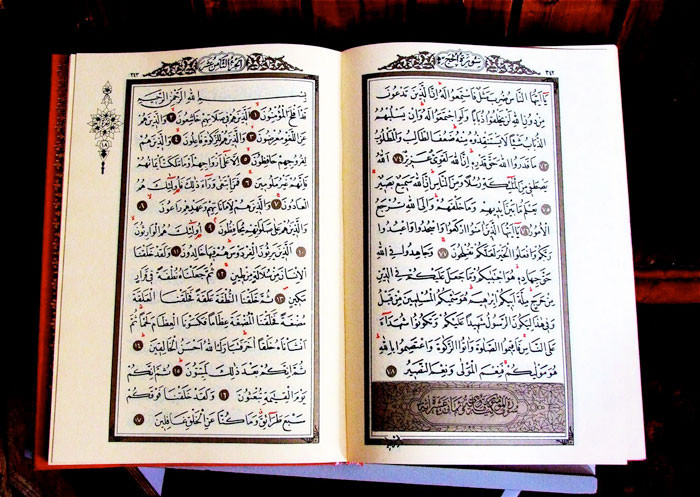 سورة الحج
٣٤٢
يَا أَيُّهَا النَّاسُ ضُرِبَ مَثَلٌ فَاسْتَمِعُوا لَهُ إِنَّ الَّذِينَ تَدْعُونَ
مِنْ دُونِ اللَّهِ لَنْ يَخْلُقُوا ذُبَابًا وَلَوِ اجْتَمَعُوا لَهُ وَإِنْ يَسْلُبْهُمُ
الذُّبَابُ شَيْئًا لَا يَسْتَنْقِذُوهُ مِنْهُ ضَعُفَ الطَّالِبُ وَالْمَطْلُوبُ
٧٣ مَا قَدَرُوا اللَّهَ حَقَّ قَدْرِهِ إِنَّ اللَّهَ لَقَوِيٌّ عَزِيزٌ ٧٤ اللَّهُ
يَصْطَفِي مِنَ الْمَلَائِكَةِ رُسُلًا وَمِنَ النَّاسِ إِنَّ اللَّهَ سَمِيعٌ بَصِيرٌ
٧٥ يَعْلَمُ مَا بَيْنَ أَيْدِيهِمْ وَمَا خَلْفَهُمْ وَإِلَى اللَّهِ تُرْجَعُ
الْأُمُورُ ٧٦ يَا أَيُّهَا الَّذِينَ آمَنُوا ارْكَعُوا وَاسْجُدُوا وَاعْبُدُوا
رَبَّكُمْ وَافْعَلُوا الْخَيْرَ لَعَلَّكُمْ تُفْلِحُونَ ٧٧ وَجَاهِدُوا فِي اللَّهِ
حَقَّ جِهَادِهِ هُوَ اجْتَبَاكُمْ وَمَا جَعَلَ عَلَيْكُمْ فِي الدِّينِ
مِنْ حَرَجٍ مِلَّةَ أَبِيكُمْ إِبْرَاهِيمَ هُوَ سَمَّاكُمُ الْمُسْلِمِينَ مِنْ قَبْلُ
وَفِي هَذَا لِيَكُونَ الرَّسُولُ شَهِيدًا عَلَيْكُمْ وَتَكُونُوا شُهَدَاءَ
عَلَى النَّاسِ فَأَقِيمُوا الصَّلَاةَ وَآتُوا الزَّكَاةَ وَاعْتَصِمُوا بِاللَّهِ
هُوَ مَوْلَاكُمْ فَنِعْمَ الْمَوْلَى وَنِعْمَ النَّصِيرُ ٧٨
الجزء الثامن عشر
٣٤٣
بِسْمِ اللَّهِ الرَّحْمَنِ الرَّحِيمِ
قَدْ أَفْلَحَ الْمُؤْمِنُونَ ١ الَّذِينَ هُمْ فِي صَلَاتِهِمْ خَاشِعُونَ ٢ وَالَّذِينَ هُمْ
عَنِ اللَّغْوِ مُعْرِضُونَ ٣ وَالَّذِينَ هُمْ لِلزَّكَاةِ فَاعِلُونَ ٤ وَالَّذِينَ هُمْ
لِفُرُوجِهِمْ حَافِظُونَ ٥ إِلَّا عَلَى أَزْوَاجِهِمْ أَوْ مَا مَلَكَتْ أَيْمَانُهُمْ
فَإِنَّهُمْ غَيْرُ مَلُومِينَ ٦ فَمَنِ ابْتَغَى وَرَاءَ ذَلِكَ فَأُولَئِكَ هُمُ
الْعَادُونَ ٧ وَالَّذِينَ هُمْ لِأَمَانَاتِهِمْ وَعَهْدِهِمْ رَاعُونَ ٨
وَالَّذِينَ هُمْ عَلَى صَلَوَاتِهِمْ يُحَافِظُونَ ٩ أُولَئِكَ هُمُ الْوَارِثُونَ
١٠ الَّذِينَ يَرِثُونَ الْفِرْدَوْسَ هُمْ فِيهَا خَالِدُونَ ١١ وَلَقَدْ خَلَقْنَا
الْإِنْسَانَ مِنْ سُلَالَةٍ مِنْ طِينٍ ١٢ ثُمَّ جَعَلْنَاهُ نُطْفَةً فِي قَرَارٍ
مَكِينٍ ١٣ ثُمَّ خَلَقْنَا النُّطْفَةَ عَلَقَةً فَخَلَقْنَا الْعَلَقَةَ
مُضْغَةً فَخَلَقْنَا الْمُضْغَةَ عِظَامًا فَكَسَوْنَا الْعِظَامَ لَحْمًا ثُمَّ
أَنْشَأْنَاهُ خَلْقًا آخَرَ فَتَبَارَكَ اللَّهُ أَحْسَنُ الْخَالِقِينَ ١٤
ثُمَّ إِنَّكُمْ بَعْدَ ذَلِكَ لَمَيِّتُونَ ١٥ ثُمَّ إِنَّكُمْ
يَوْمَ الْقِيَامَةِ تُبْعَثُونَ ١٦ وَلَقَدْ خَلَقْنَا فَوْقَكُمْ
سَبْعَ طَرَائِقَ وَمَا كُنَّا عَنِ الْخَلْقِ غَافِلِينَ ١٧